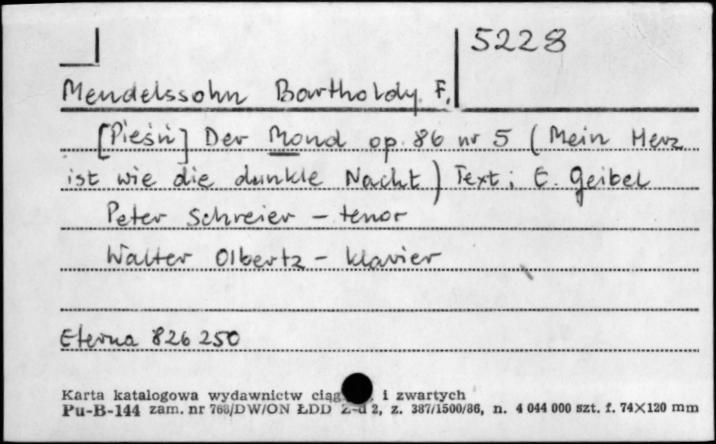 5228
Mendelssohn Bartholdy F.
[Pieśń] Der Mond op. 86 nr 5 (Mein Herz
ist wie die dunkle Nacht) Text: E. Geibel
Peter Schreier – tenor
Walter Olbertz – klavier
Eterna 826 250
Karta katalogowa wydawnictw i zwartych
Pu-B-144 zam. nr 768/DW/ON ŁDD 2, z. 387/1500/86, n. 4 044 000 szt. f. 74×120 mm